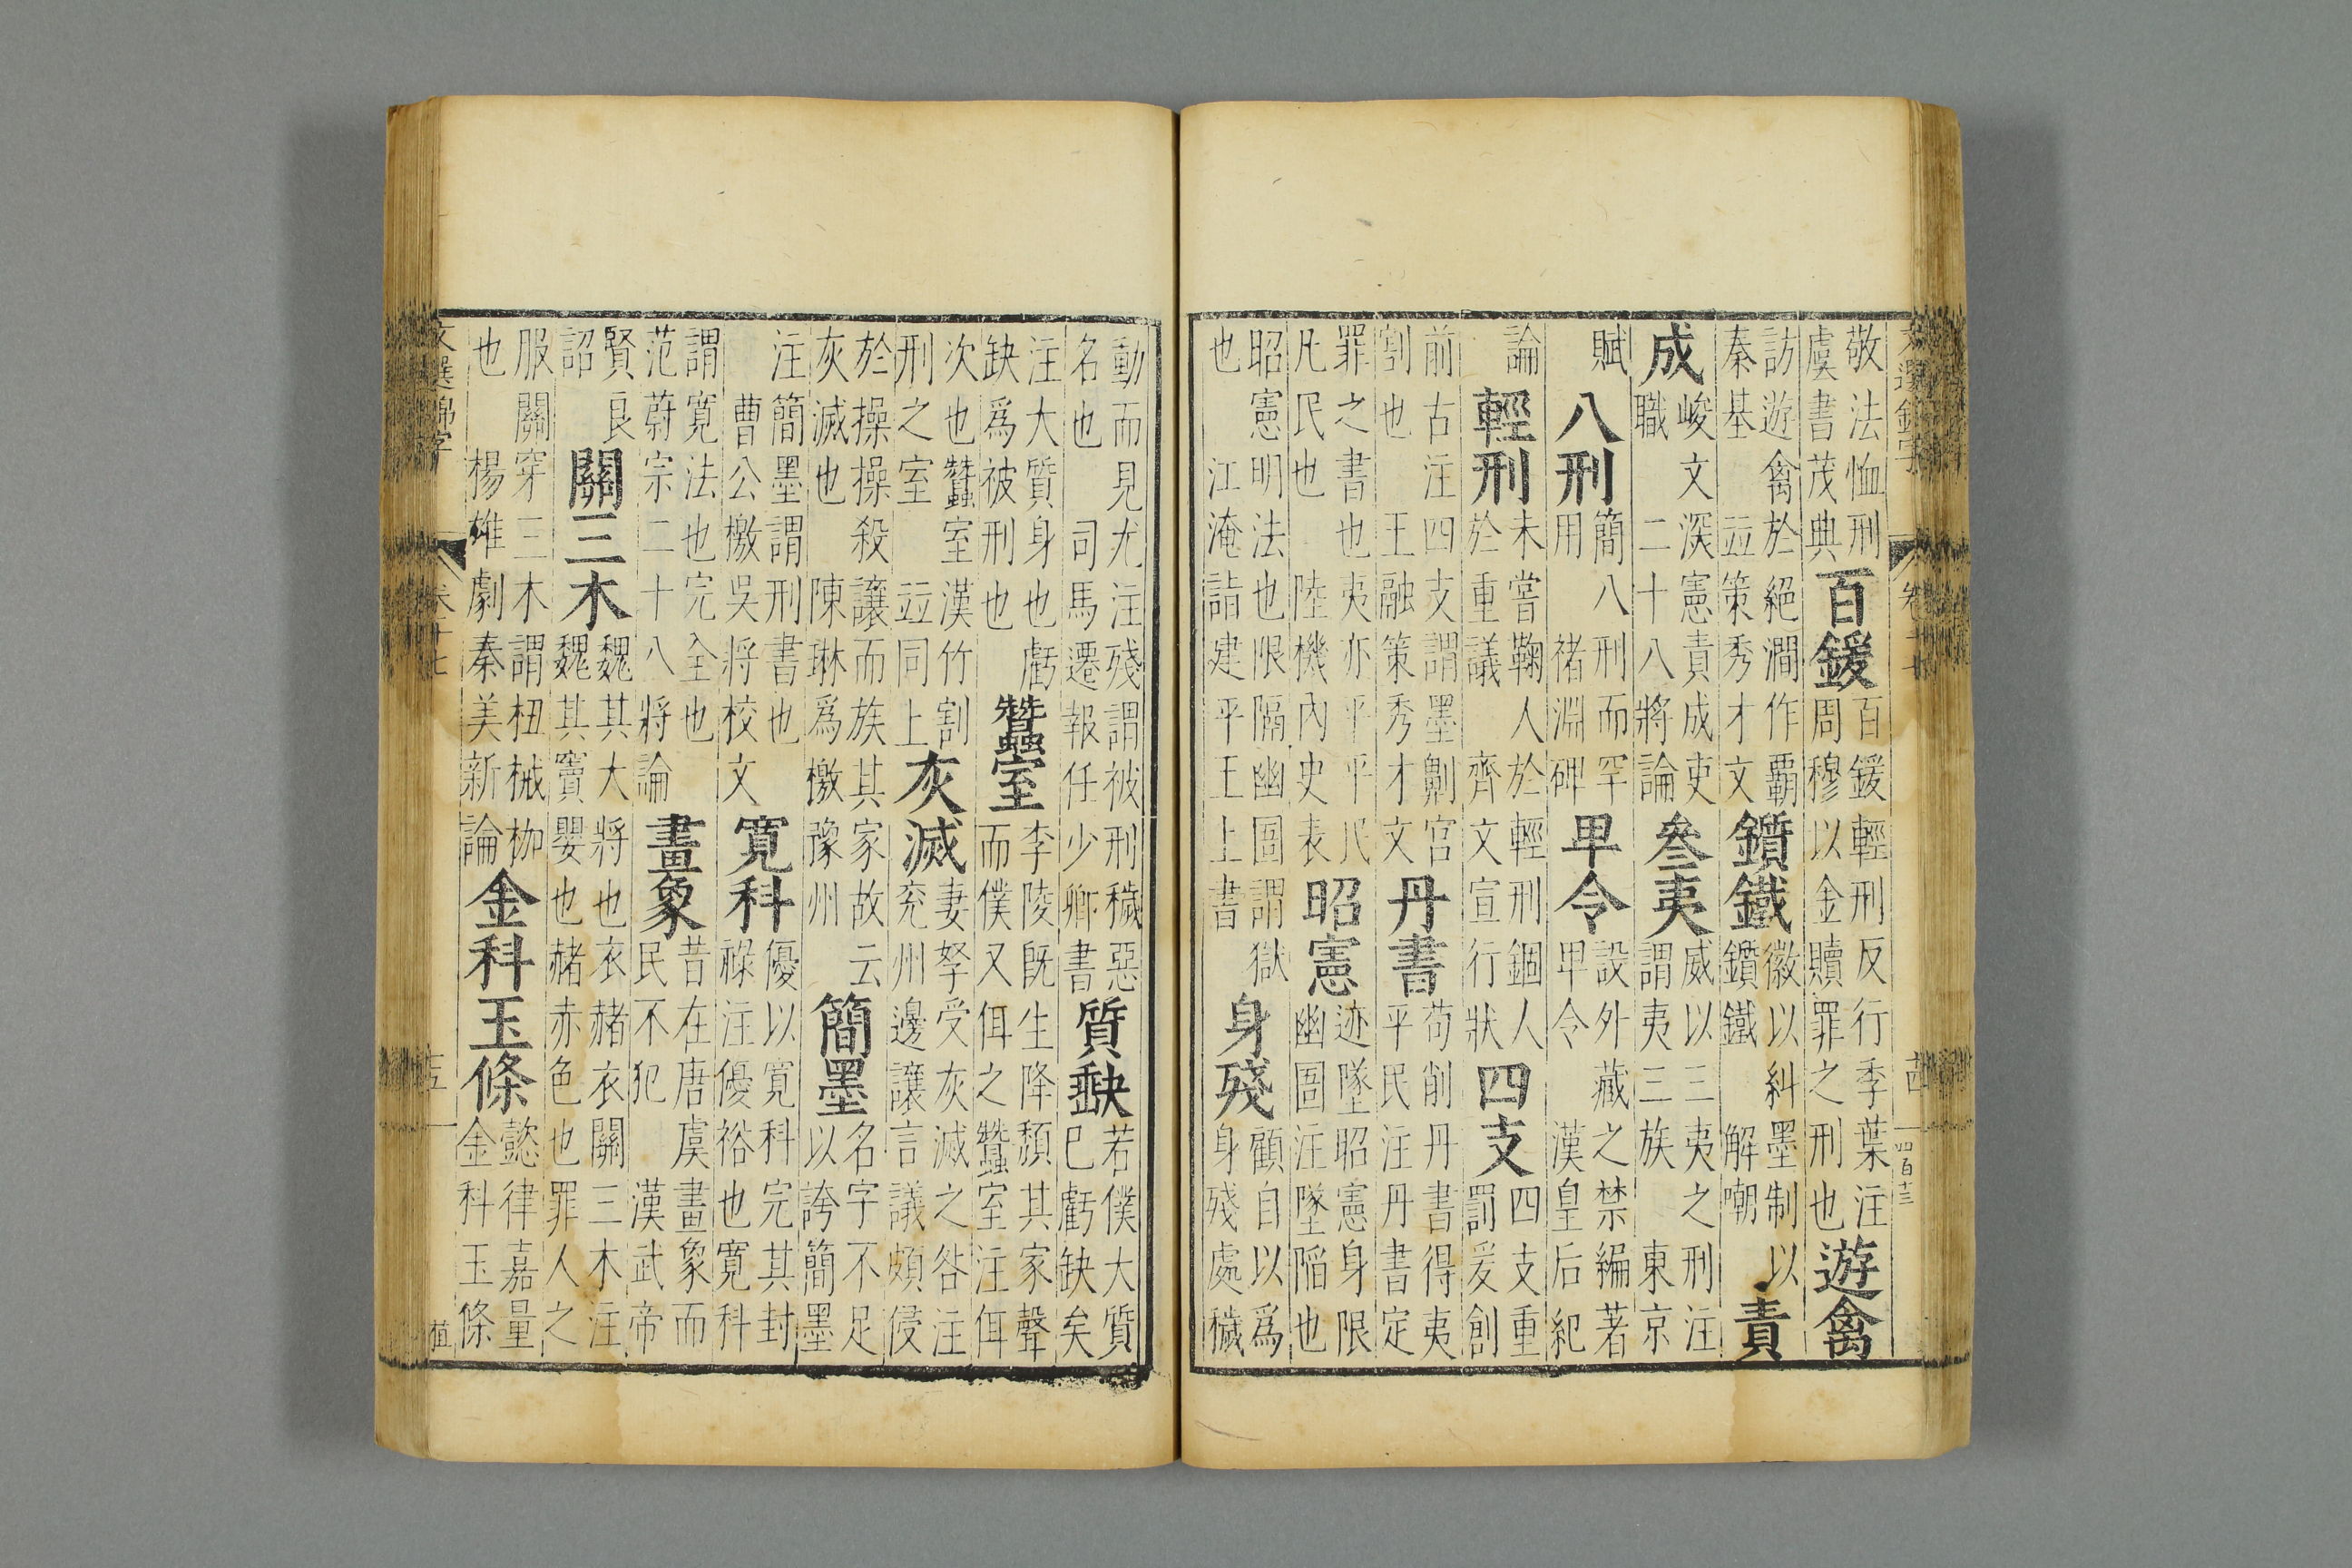 文選錦字 卷十七 十四 四百十三
敬法恤刑虞書茂典百鍰百鍰輕刑反行季葉注周穆以金贖罪之刑也遊禽
訪遊禽於絕澗作覇秦基 竝策秀才文鑕鐵徽以糾墨制以鑕鐵 解嘲責
成峻文深憲責成吏職 二十八將論叄夷威以三夷之刑注謂夷三族 東京
賦八刑簡八刑而罕用 褚淵碑甲令設外藏之禁編著甲令 漢皇后紀
論輕刑未嘗鞠人於輕刑錮人於重議 齊文宣行狀四支四支重罰爰創
前古注四支謂墨劓宮割也 王融策秀才文丹書苟削丹書得夷平民注丹書定
罪之書也夷亦平平民凡民也 陸機內史表昭憲迹墜昭憲身限幽圄注墜陷也
昭憲明法也限隔幽圄謂獄也 江淹詣建平王上書身殘顧自以爲身殘處穢
動而見尤注殘謂被刑穢惡名也 司馬遷報任少卿書質缺若僕大質已虧缺矣
注大質身也虧缺爲被刑也蠶室李陵既生降頹其家聲而僕又佴之蠶室注佴
次也蠶室漢竹割刑之室 竝同上灰滅妻孥受灰滅之咎注兖州邊讓言議頗侵
於操操殺讓而族其家故云灰滅也 陳琳爲檄豫州簡墨名字不足以誇簡墨
注簡墨謂刑書也曹公檄吳將校文寛科優以寛科完其封祿注優裕也寛科
謂寛法也完全也范蔚宗二十八將論畫象昔在唐虞畫象而民不犯 漢武帝
賢良詔關三木魏其大將也衣赭衣關三木注魏其竇嬰也赭赤色也罪人之
服關穿三木謂杻械枷也 楊雄劇秦美新論金科玉條懿律嘉量金科玉條
文選錦字 卷十七 十五